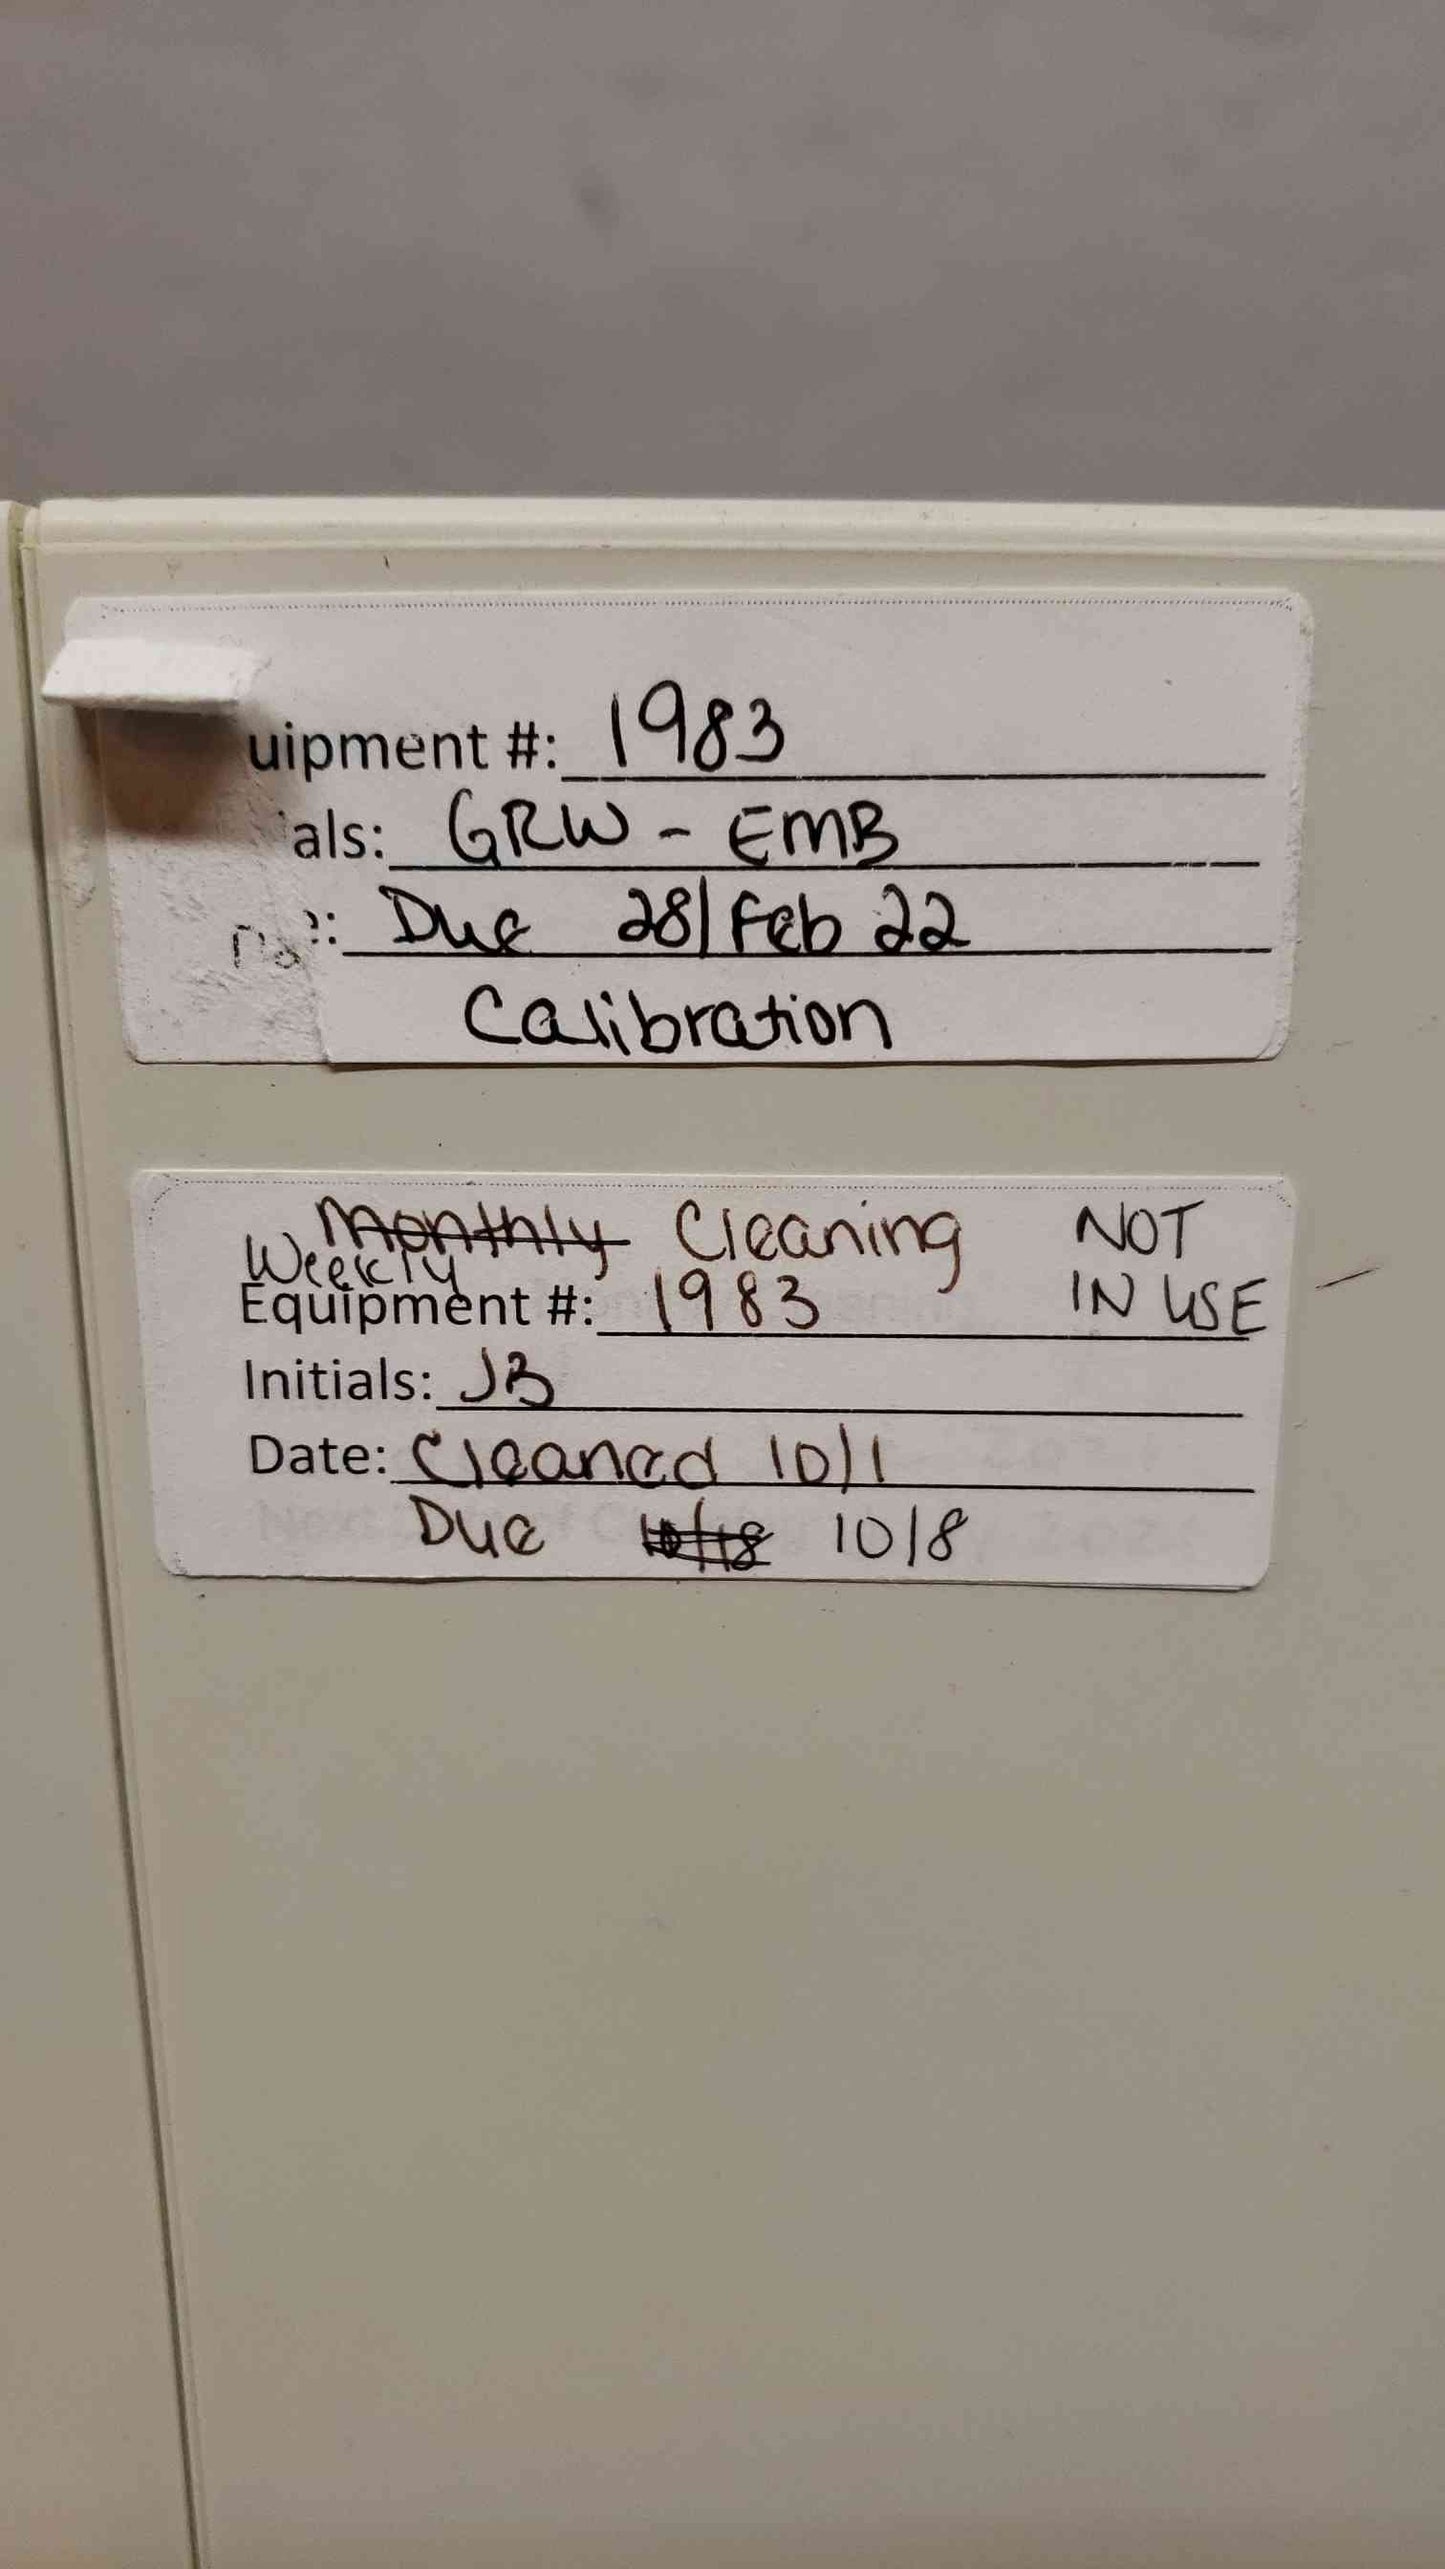 uipment #: 1983
als: GRW - EMB
e: Due 28/Feb 22
Calibration
Monthly Cleaning NOT
Weekly
Equipment #: 1983 IN USE
Initials: JB
Date: Cleaned 10/1
Due 10/18 10/8